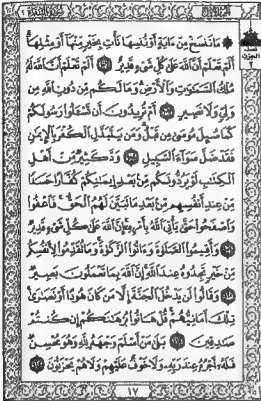 نصف
الحزب
٢
۞ مَا نَنسَخْ مِنْ ءَايَةٍ أَوْ نُنسِهَا نَأْتِ بِخَيْرٍ مِّنْهَا أَوْ مِثْلِهَا
أَلَمْ تَعْلَمْ أَنَّ ٱللَّهَ عَلَىٰ كُلِّ شَىْءٍ قَدِيرٌ ﴿١٠٦﴾ أَلَمْ تَعْلَمْ أَنَّ ٱللَّهَ لَهُۥ
مُلْكُ ٱلسَّمَٰوَٰتِ وَٱلْأَرْضِ وَمَا لَكُم مِّن دُونِ ٱللَّهِ مِن
وَلِىٍّ وَلَا نَصِيرٍ ﴿١٠٧﴾ أَمْ تُرِيدُونَ أَن تَسْـَٔلُوا۟ رَسُولَكُمْ
كَمَا سُئِلَ مُوسَىٰ مِن قَبْلُ وَمَن يَتَبَدَّلِ ٱلْكُفْرَ بِٱلْإِيمَٰنِ
فَقَدْ ضَلَّ سَوَآءَ ٱلسَّبِيلِ ﴿١٠٨﴾ وَدَّ كَثِيرٌ مِّنْ أَهْلِ
ٱلْكِتَٰبِ لَوْ يَرُدُّونَكُم مِّنۢ بَعْدِ إِيمَٰنِكُمْ كُفَّارًا حَسَدًا
مِّنْ عِندِ أَنفُسِهِم مِّنۢ بَعْدِ مَا تَبَيَّنَ لَهُمُ ٱلْحَقُّ فَٱعْفُوا۟
وَٱصْفَحُوا۟ حَتَّىٰ يَأْتِىَ ٱللَّهُ بِأَمْرِهِۦٓ إِنَّ ٱللَّهَ عَلَىٰ كُلِّ شَىْءٍ قَدِيرٌ
﴿١٠٩﴾ وَأَقِيمُوا۟ ٱلصَّلَوٰةَ وَءَاتُوا۟ ٱلزَّكَوٰةَ وَمَا تُقَدِّمُوا۟ لِأَنفُسِكُم
مِّنْ خَيْرٍ تَجِدُوهُ عِندَ ٱللَّهِ إِنَّ ٱللَّهَ بِمَا تَعْمَلُونَ بَصِيرٌ
﴿١١٠﴾ وَقَالُوا۟ لَن يَدْخُلَ ٱلْجَنَّةَ إِلَّا مَن كَانَ هُودًا أَوْ نَصَٰرَىٰ
تِلْكَ أَمَانِيُّهُمْ قُلْ هَاتُوا۟ بُرْهَٰنَكُمْ إِن كُنتُمْ
صَٰدِقِينَ ﴿١١١﴾ بَلَىٰ مَنْ أَسْلَمَ وَجْهَهُۥ لِلَّهِ وَهُوَ مُحْسِنٌ
فَلَهُۥٓ أَجْرُهُۥ عِندَ رَبِّهِۦ وَلَا خَوْفٌ عَلَيْهِمْ وَلَا هُمْ يَحْزَنُونَ ﴿١١٢﴾
١٧